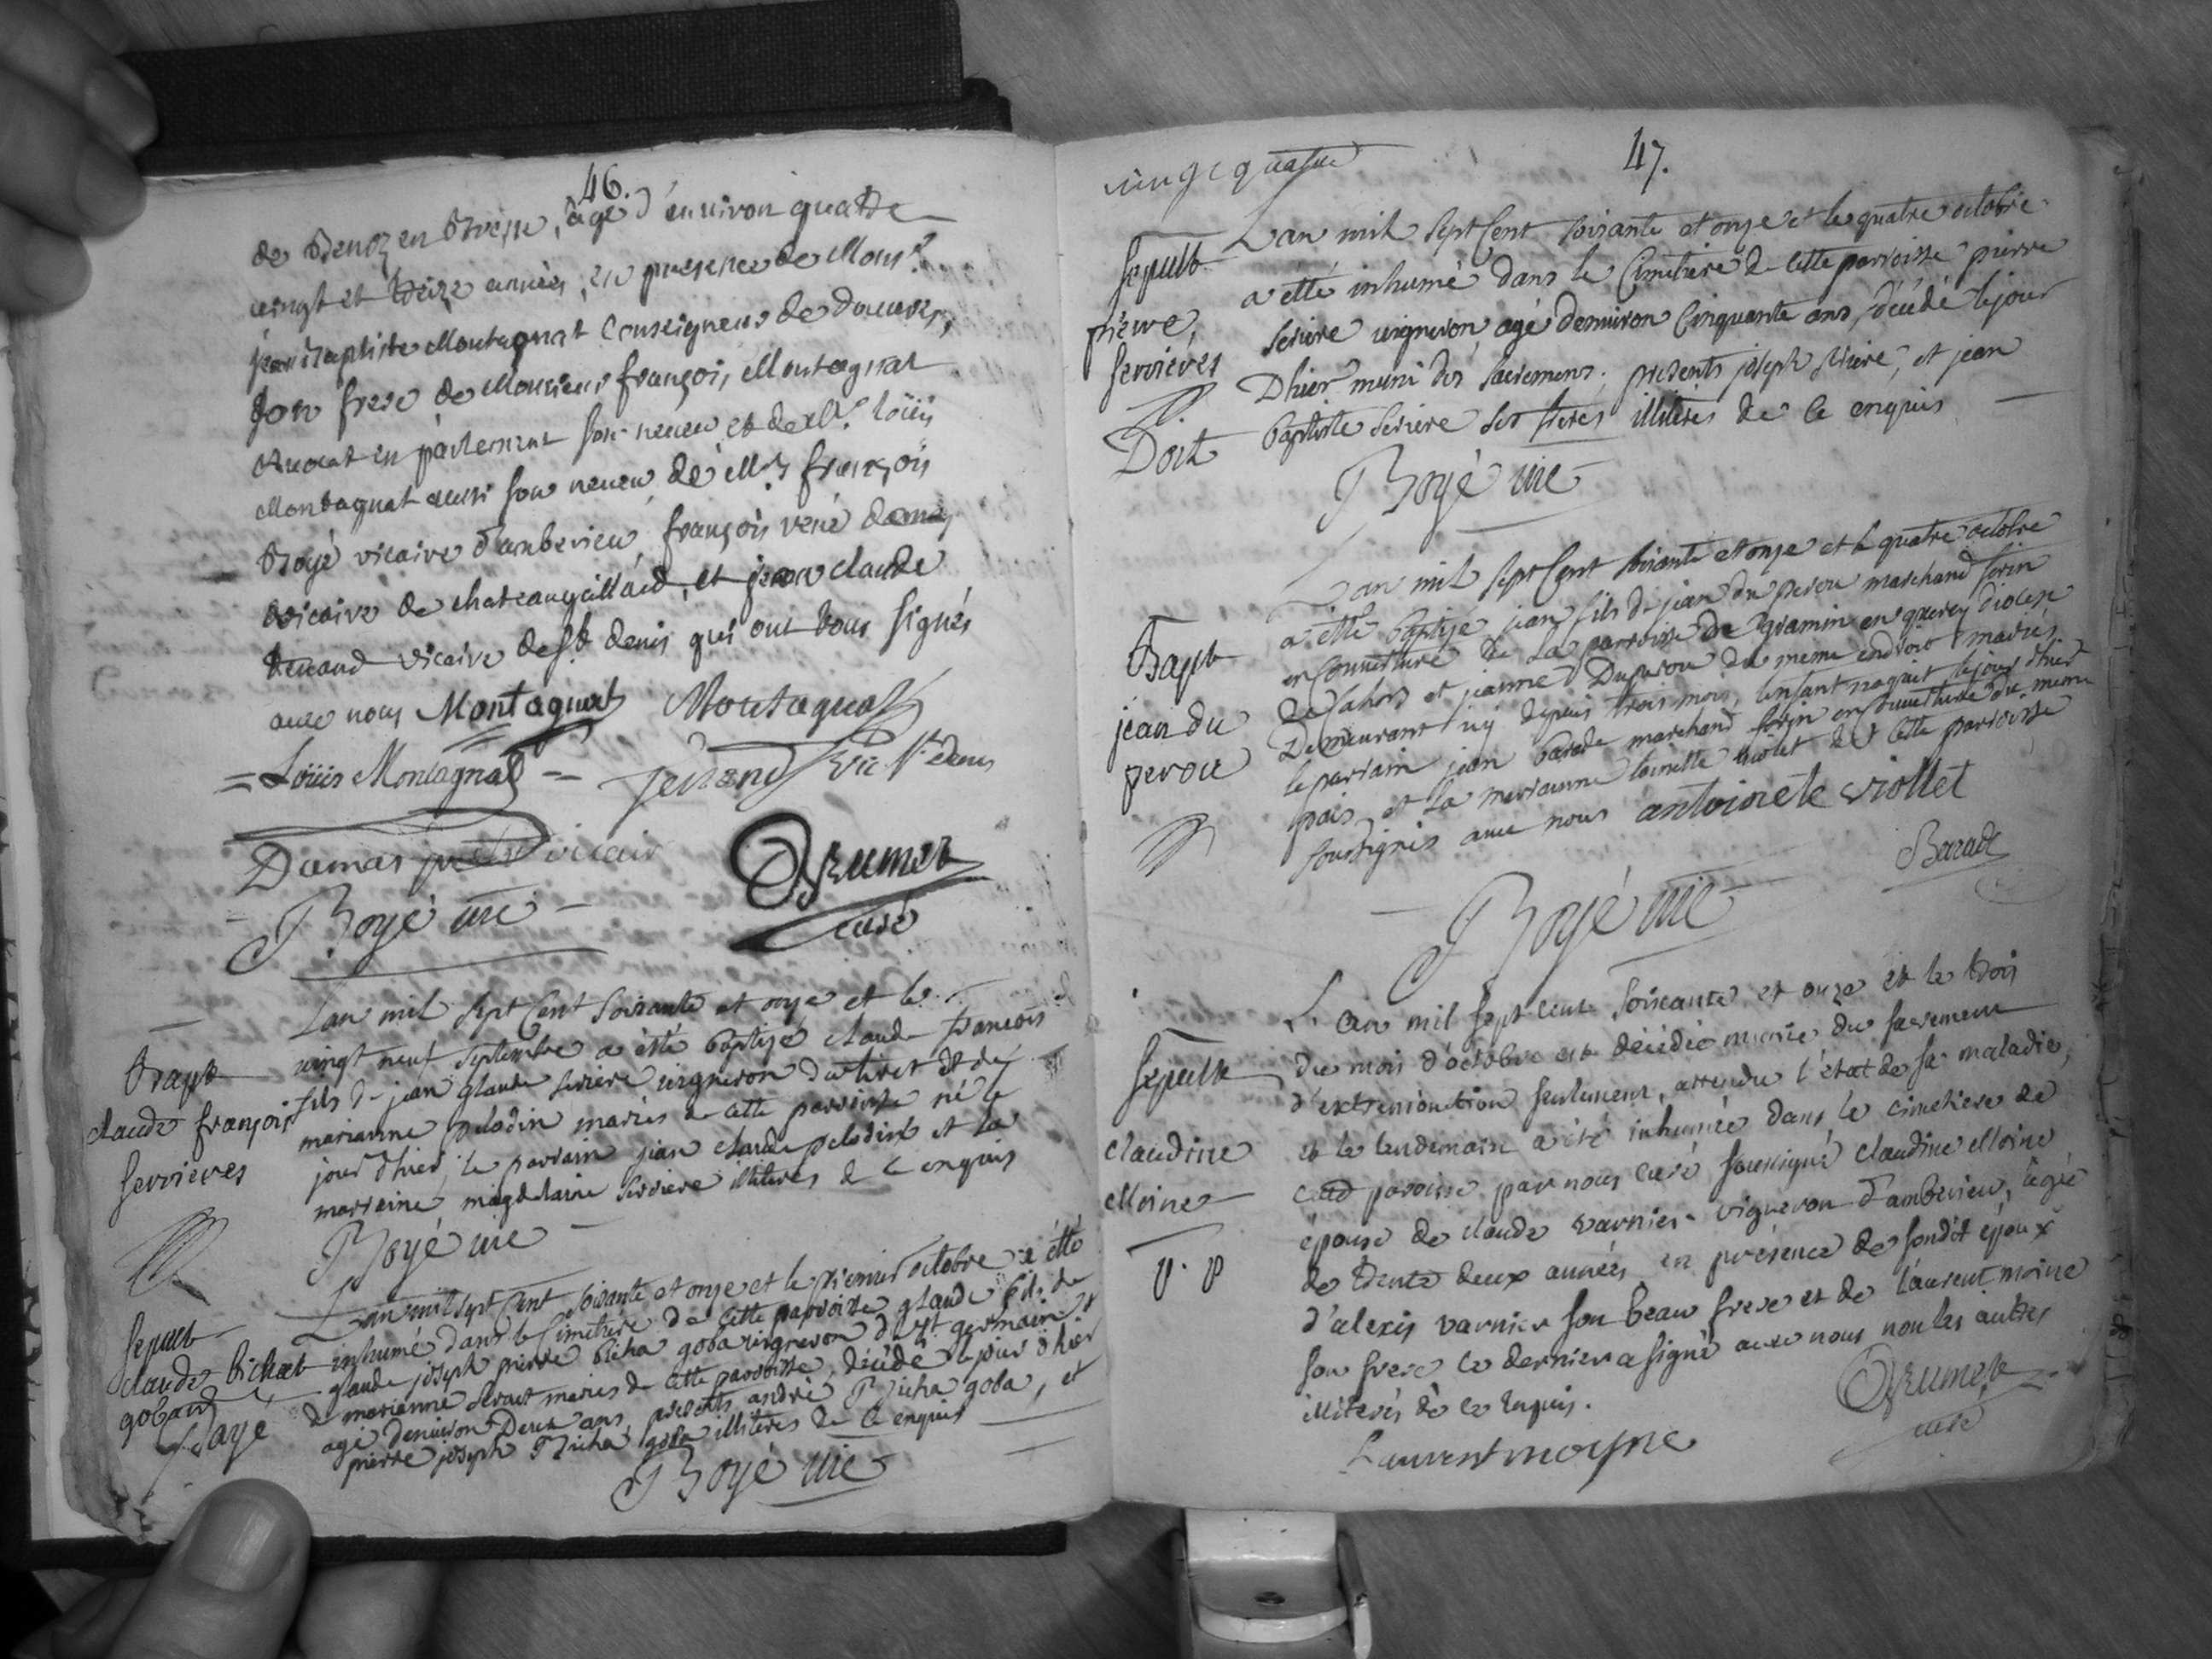 46.
de Benoz en Bresse, agé d'environ quatre
vingt et treize années, en presence de Mons.r
jean Baptiste Montagnat Conseigneur de douvres,
son frere de Monsieur françois Montagnat
avocat en parlement son neveu et de M.r Loüis
Montagnat aussi son neveu de M.rs françois
Boyé vicaire d'amberieu, françois rené damas
vicaire de chateaugaillard, et jean claude
vicaire de s.t denis qui ont tous signés
avec nous Montagnat Montagnat
= Loüis Montagnat = vic s.t denis
Damas pretre vicair
Boyé vic Brumet
curé
Bapt
claude françois
serrieres
Lan mil sept Cent soixante et onze et le
vingt neuf septembre a étté baptizé claude françois
fils de jean glaude seriere vigneron du tiret et de
marianne peladin mariés de cette parroisse né le
jour d'hier, le parrain jean claude peladin et la
marreine magdelaine serriere illiteres de ce enquis
Boyé vic
sepult
claude bichat
gobaud
Payé
Lan mil sept Cent soixante et onze et le premier octobre a étté
inhumé dans le Cimetiere de cette parroisse glaude fils de
glaude joseph pierre bicha goba vigneron de st germain &
de marianne mariés de cette parroisse, décédé le jour d'hier
agé denviron Deux ans, presents andré Bicha goba, et
pierre joseph Bicha goba illiteres de ce enquis
Boyé vic
vingt quatre
47.
sepult
pierre
serrieres
Doit
Lan mil sept Cent soixante et onze et le quatre octobre
a étté inhumé dans le Cimetiere de cette parroisse pierre
seriere vigneron, agé denviron Cinquante ans, décédé le jour
Dhier muni des sacremens; presents joseph seriere, et jean
baptiste seriere ses freres illiteres de ce enquis
Boyé vic
Bapt
jean du
perou
Lan mil sept Cent soixante et onze et le quatre octobre
a étté baptizé jean fils de jean du perou marchand forin
en Couverture de La parroisse de gramin en querey diocese
de Cahors et jeanne Duperou du meme endroit mariés
Demeurant icy depuis trois mois, lenfant naquit le jour d'hier
le parrain jean barade marchand forin en Couverture du meme
pais, et la marianne toinette violet de cette parroisse
soussignés avec nous antoinete viollet
Barade
Boyé vic
sepulte
claudine
Moine
L'an mil sept cent soixante et onze et le trois
du mois d'octobre est décédée munie du sacrement
d'extremonction seulement, attendu l'état de sa maladie,
et le lendemain a été inhumée dans le cimetiere de
cette paroisse par nous curé soussigné claudine Moine
épouse de claude varnier vigneron d'amberieu, agée
de trente deux années en présence de sondit époux
d'alexis varnier son beau frere et de laurent moine
son frere, ce dernier a signé avec nous non les autres
illiterés de ce enquis.
Laurent moyne
Brumet
curé